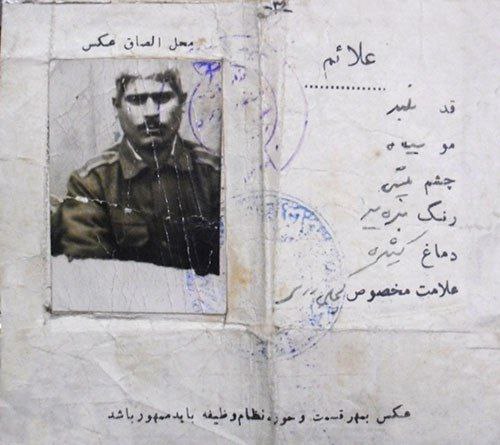 محل الصاق عکس
علائم
قد بلند
مو سیاه
چشم میشی
رنگ
دماغ کشیده
علامت مخصوص
عکس بمهر قسمت و حوزه نظام وظیفه باید ممهور باشد